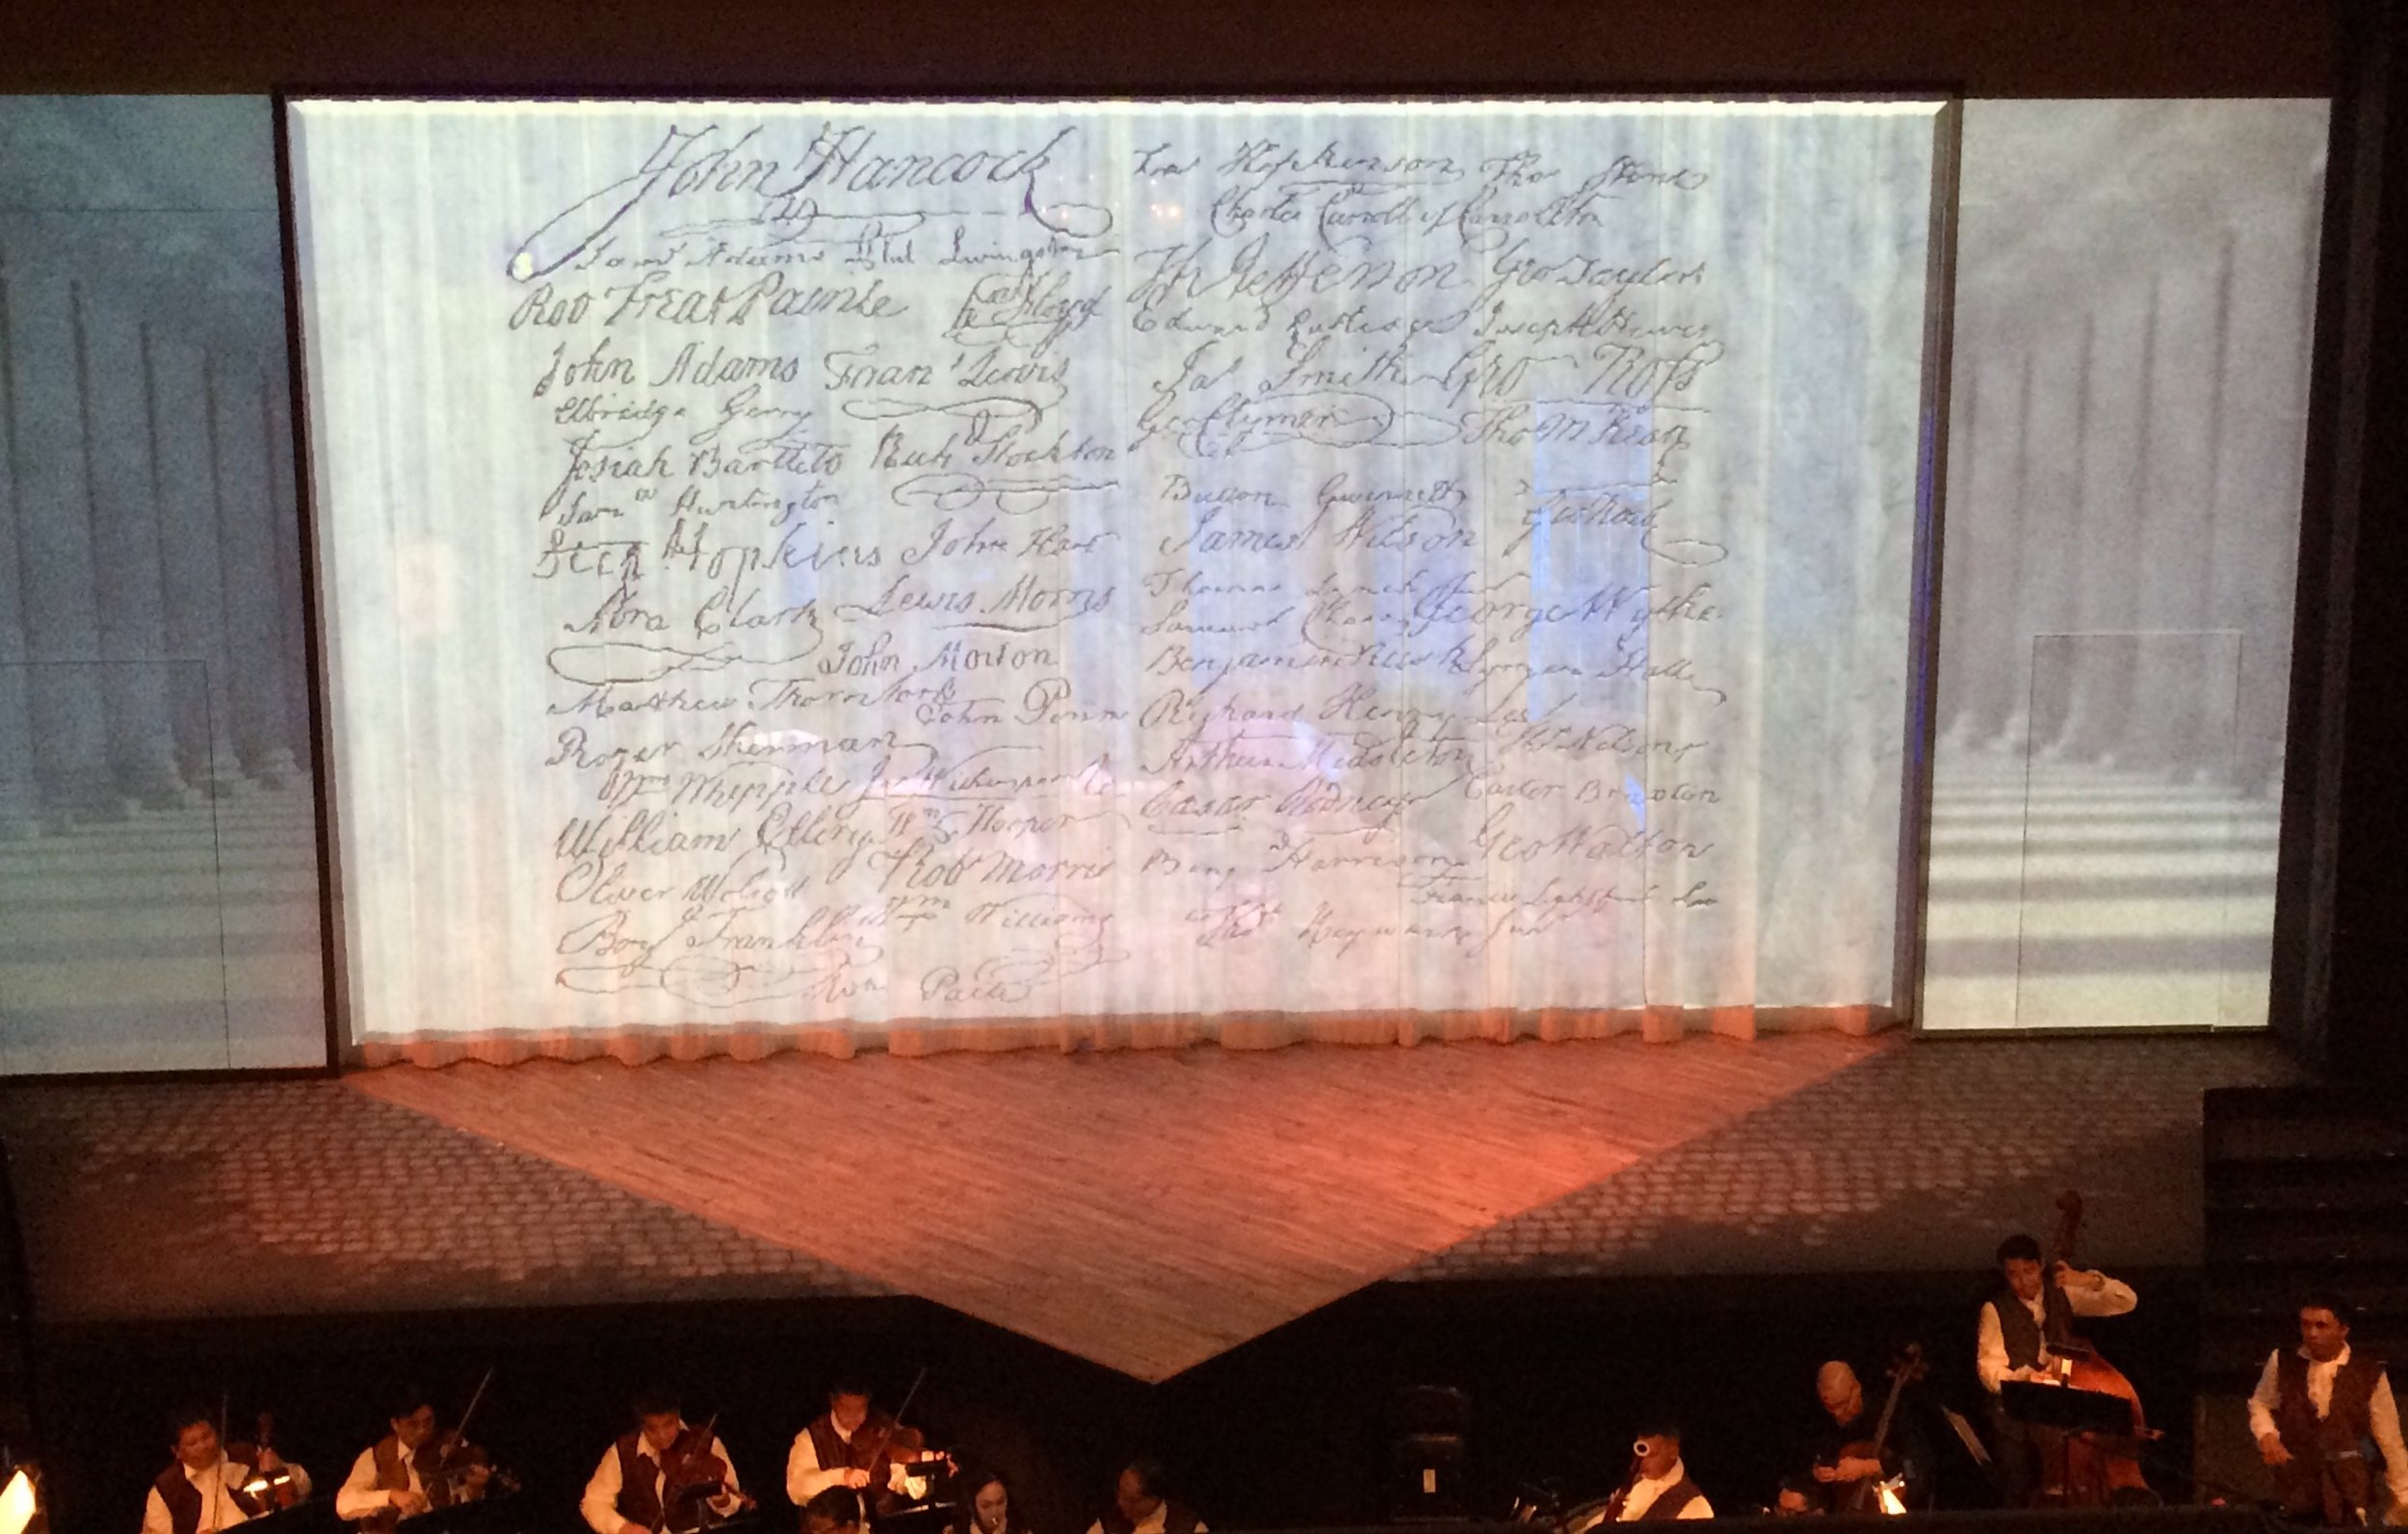 John Hancock
Saml Adams Phil Livingston
Rob Treat Paine Wm Floyd
John Adams Fran Lewis
Elbridge Gerry
Josiah Bartlett Richd Stockton
Saml Huntington
Step Hopkins John Hart
Abra Clark Lewis Morris
John Morton
Matthew Thornton
John Penn
Roger Sherman
Wm Whipple Jno Witherspoon
William Ellery Wm Hooper
Oliver Wolcott Rob Morris
Benj Franklin Wm Williams
Wm Paca
Fras Hopkinson Thos Stone
Charles Carroll of Carrollton
Th Jefferson Geo Taylor
Edward Rutledge Joseph Hewes
Jas Smith Geo Ross
Geo Clymer Tho M Kean
Button Gwinnett
Geo Read
James Wilson
Thomas Lynch Junr
Samuel Chase George Wythe
Benjamin Rush Lyman Hall
Richard Henry Lee
Arthur Middleton Thos Nelson jr
Caesar Rodney Carter Braxton
Benj Harrison Geo Walton
Francis Lightfoot Lee
Thos Heyward Junr